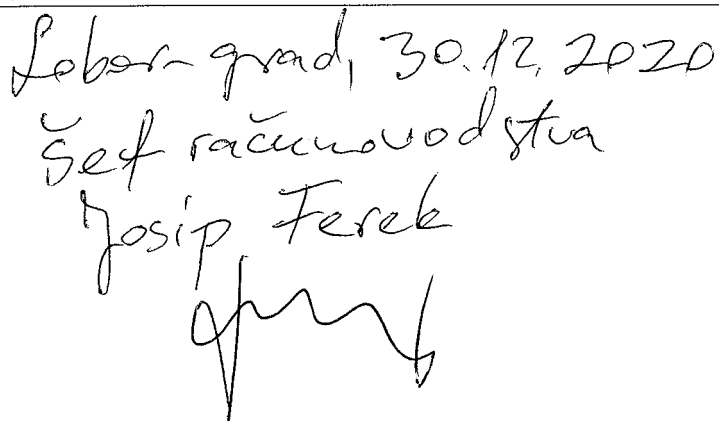 Lobor-grad, 30.12.2020
Šef računovodstva
Josip Ferek